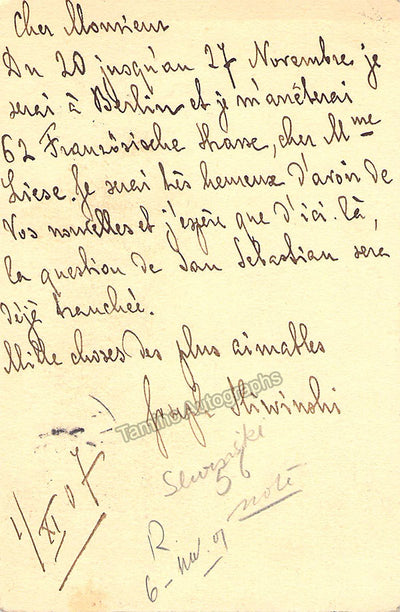 Cher Monsieur
Du 20 jusqu'au 27 Novembre je
serai à Berlin et je m'arrêterai
62 Französische strasse, chez Mme
Liese. Je serai très heureux d'avoir de
Vos nouvelles et j'espère que d'ici là,
la question de San Sebastian sera
déjà tranchée.
Mille choses des plus aimables
Joseph Sliwinski
Tamino Autographs
Sliwinski
56
noté
1/XI 07
R.
6 - nov. 07